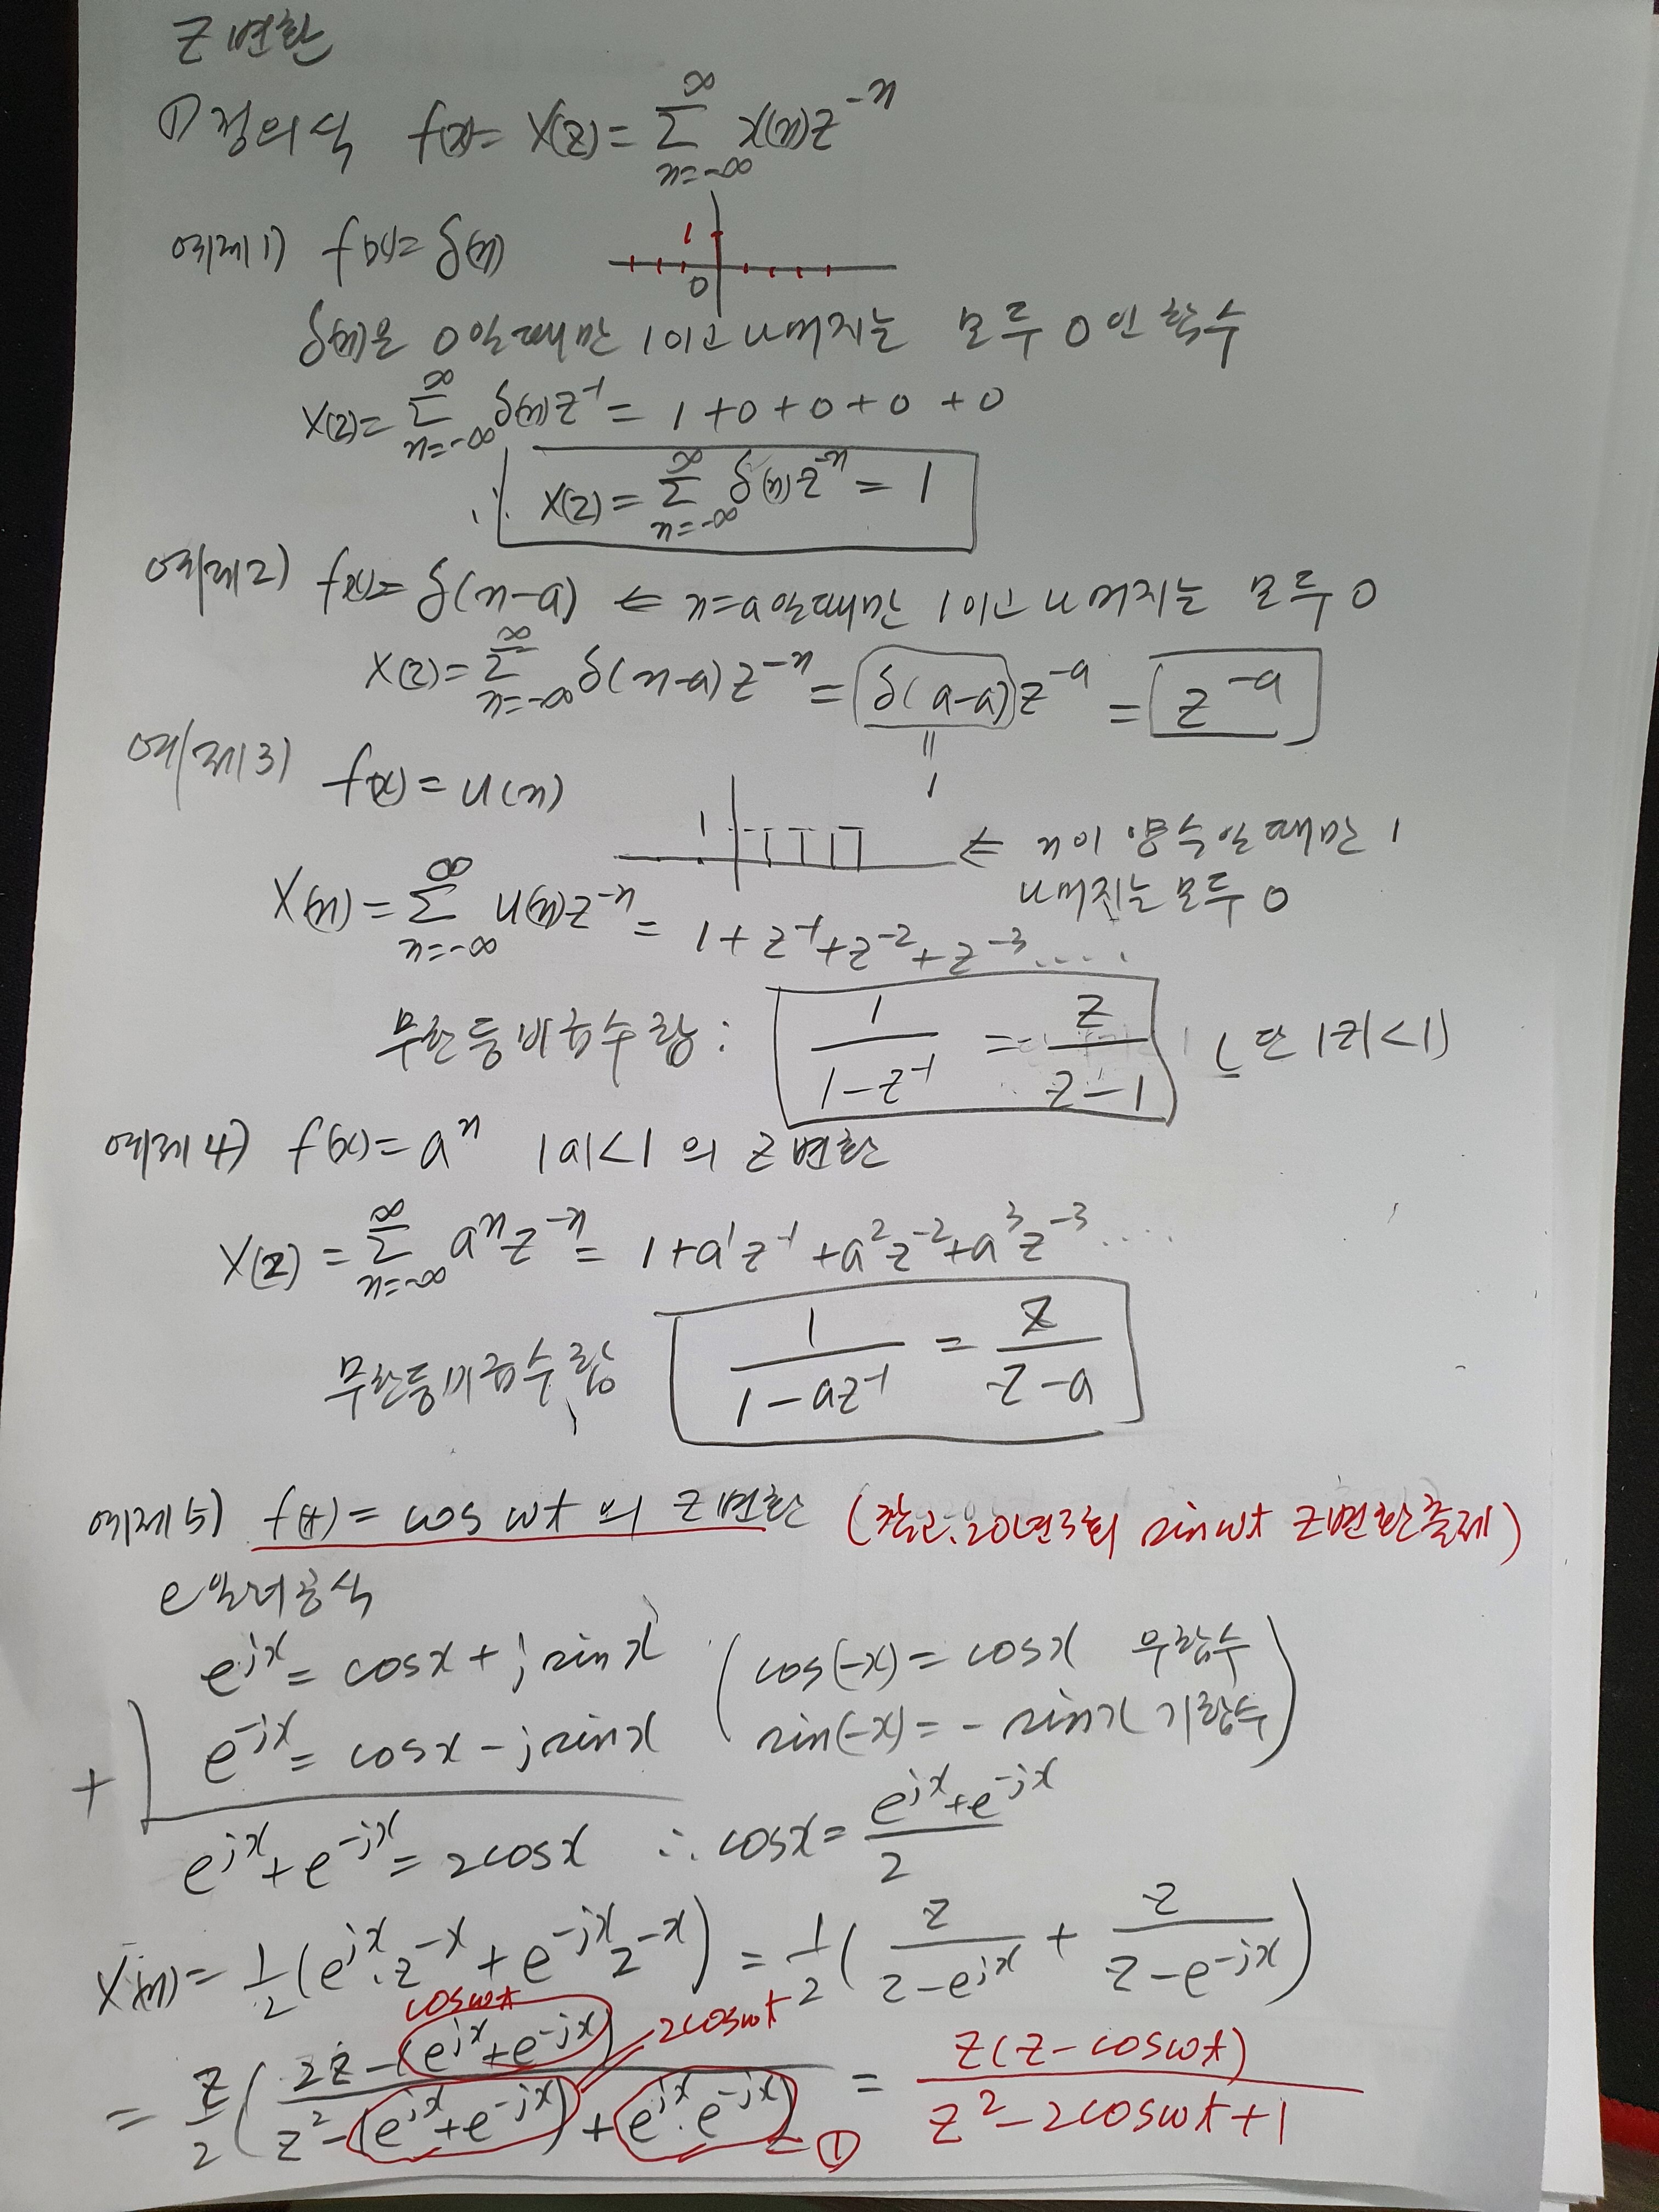 Z변환
① 정의식 f(x)= X(z)= ∑_{n=-∞}^{∞} x(n)z^{-n}
예제1) f(x)= δ(n)
1
0
δ(n)은 0일때만 1이고 나머지는 모두 0인 함수
X(z)= ∑_{n=-∞}^{∞} δ(n)z^{-1} = 1+0+0+0+0
∴ X(z)= ∑_{n=-∞}^{∞} δ(n)z^{-n} = 1
예제2) f(x)= δ(n-a) ⇐ n=a일때만 1이고 나머지는 모두 0
X(z)= ∑_{n=-∞}^{∞} δ(n-a)z^{-n} = δ(a-a)z^{-a} = z^{-a}
॥
1
예제3) f(x)= u(n)
1
⇐ n이 양수일때만 1
나머지는 모두 0
X(n)= ∑_{n=-∞}^{∞} u(n)z^{-n} = 1+z^{-1}+z^{-2}+z^{-3}.....
무한등비급수합 : 1/(1-z^{-1}) = z/(z-1) (단 |z|<1)
예제4) f(x)= a^n |a|<1 의 Z변환
X(z)= ∑_{n=-∞}^{∞} a^n z^{-n} = 1+a^1z^{-1}+a^2z^{-2}+a^3z^{-3}....
무한등비급수합 1/(1-az^{-1}) = z/(z-a)
예제5) f(t)= cos wt 의 Z변환 (참고.20년3회 sin wt Z변환출제)
e일러공식
e^{jx}= cosx+j sinx (cos(-x)= cosx 우함수
+ e^{-jx}= cosx-j sinx sin(-x)= - sinx 기함수)
e^{jx}+e^{-jx}= 2cosx ∴ cosx= (e^{jx}+e^{-jx})/2
X(n)= 1/2(e^{jx}·z^{-x}+e^{-jx}z^{-x}) = 1/2(z/(z-e^{jx}) + z/(z-e^{-jx}))
coswt 2coswt
= z/2((2z-(e^{jx}+e^{-jx}))/(z^2-(e^{jx}+e^{-jx})+e^{jx}·e^{-jx})) = z(z-coswt)/(z^2-2coswt+1)
①